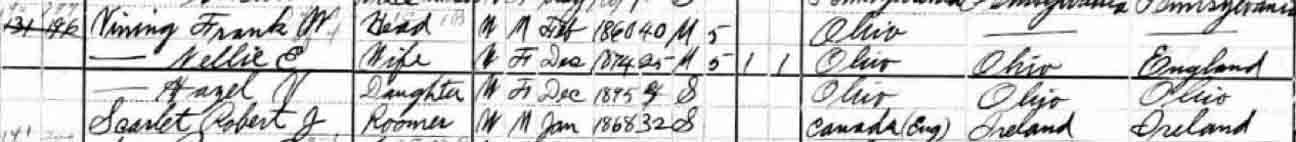 Pennsylvania Pennsylvania Pennsylvania
131 196 Vining Frank W. Head W M Feb 1860 40 M 5 Ohio — —
— Nellie E Wife W F Dec 1874 25 M 5 1 1 Ohio Ohio England
— Hazel V Daughter W F Dec 1895 4 S Ohio Ohio Ohio
Scarlet Robert J Roomer W M Jan 1868 32 S Canada (Eng) Ireland Ireland